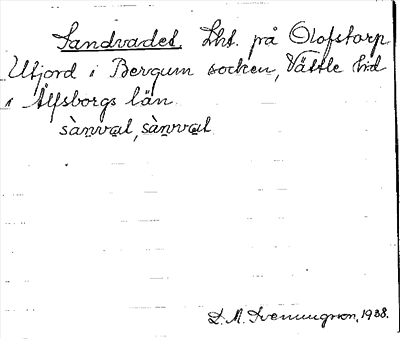 Sandvadet. Lht. på Olofstorp
Utjord i Bergum socken, Vättle hd
i Älfsborgs län.
sànvat, sànvat
D. M. Svenungsson, 1938.